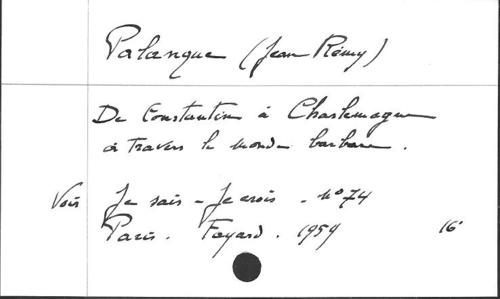 Palanque (Jean Rémy)
De Constantin à Charlemagne
à travers le monde barbare.
Voir Je sais - Je crois. N° 74
Paris. Fayard. 1959 16°